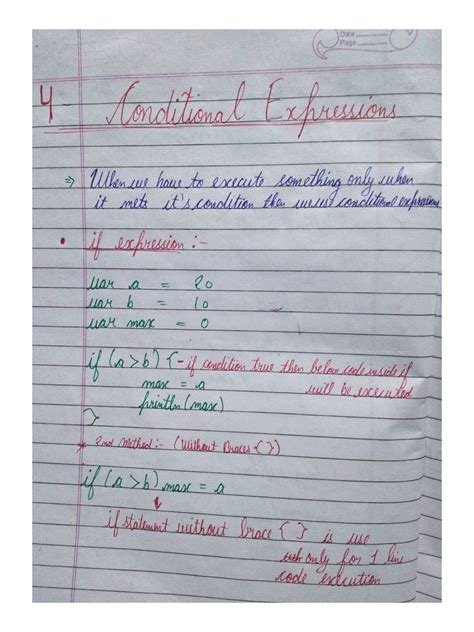 Date
Page
4 - Conditional Expressions
⇒ When we have to execute something only when
it mets it's condition then we use conditional expression
• if expression :-
var a = 20
var b = 10
var max = 0
if (a>b) { - if condition true then below code inside if
max = a will be executed
println(max)
}
* 2nd Method:- (Without Braces { })
if (a>b) max = a
↓
if statement without brace { } is use
only for 1 line
code execution